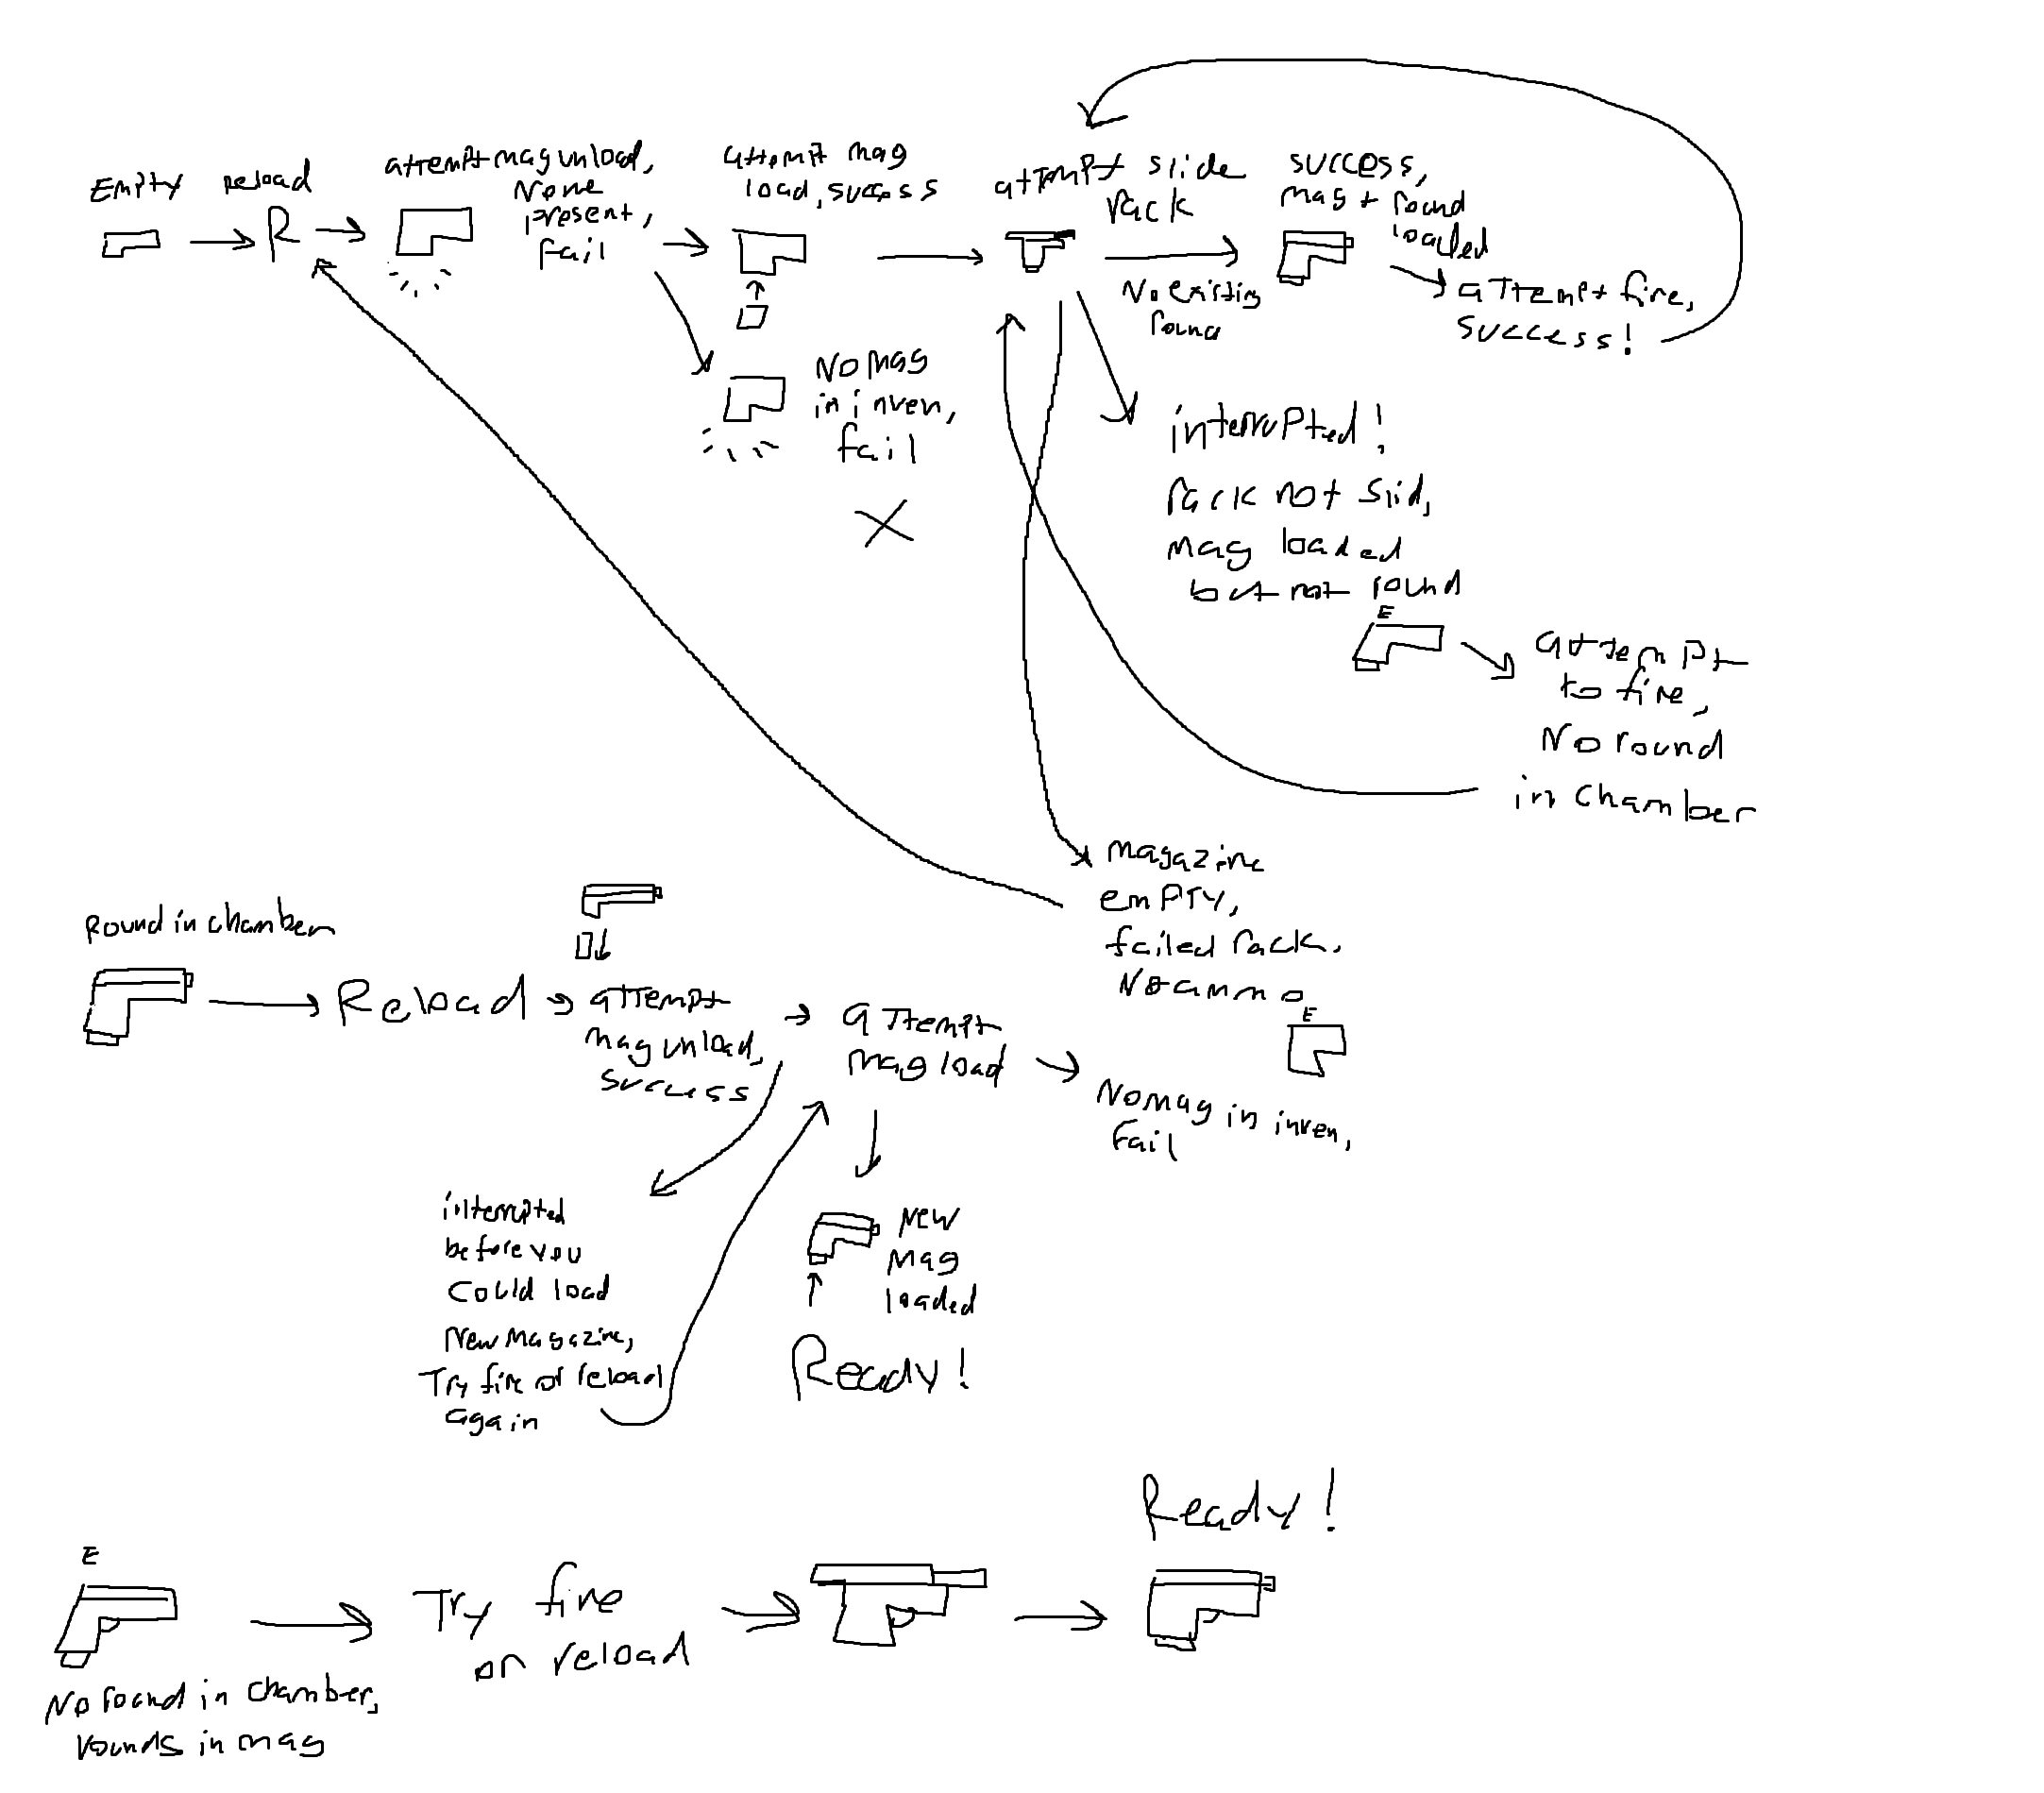 Empty
reload
R
attempt mag unload,
None
present,
fail
attempt mag
load, success
attempt slide
rack
success,
mag + round
loaded
No existing
round
attempt fire,
success!
No mag
in inven,
fail
interrupted!
rack not slid,
mag loaded
but not round
E
attempt
to fire,
No round
in chamber
magazine
empty,
failed rack.
No ammo
E
Round in chamber
Reload
attempt
mag unload,
success
attempt
mag load
No mag in inven,
fail
interrupted
before you
could load
New magazine,
Try fire or reload
again
New
mag
loaded
Ready!
E
No round in chamber,
rounds in mag
Try fire
or reload
Ready!